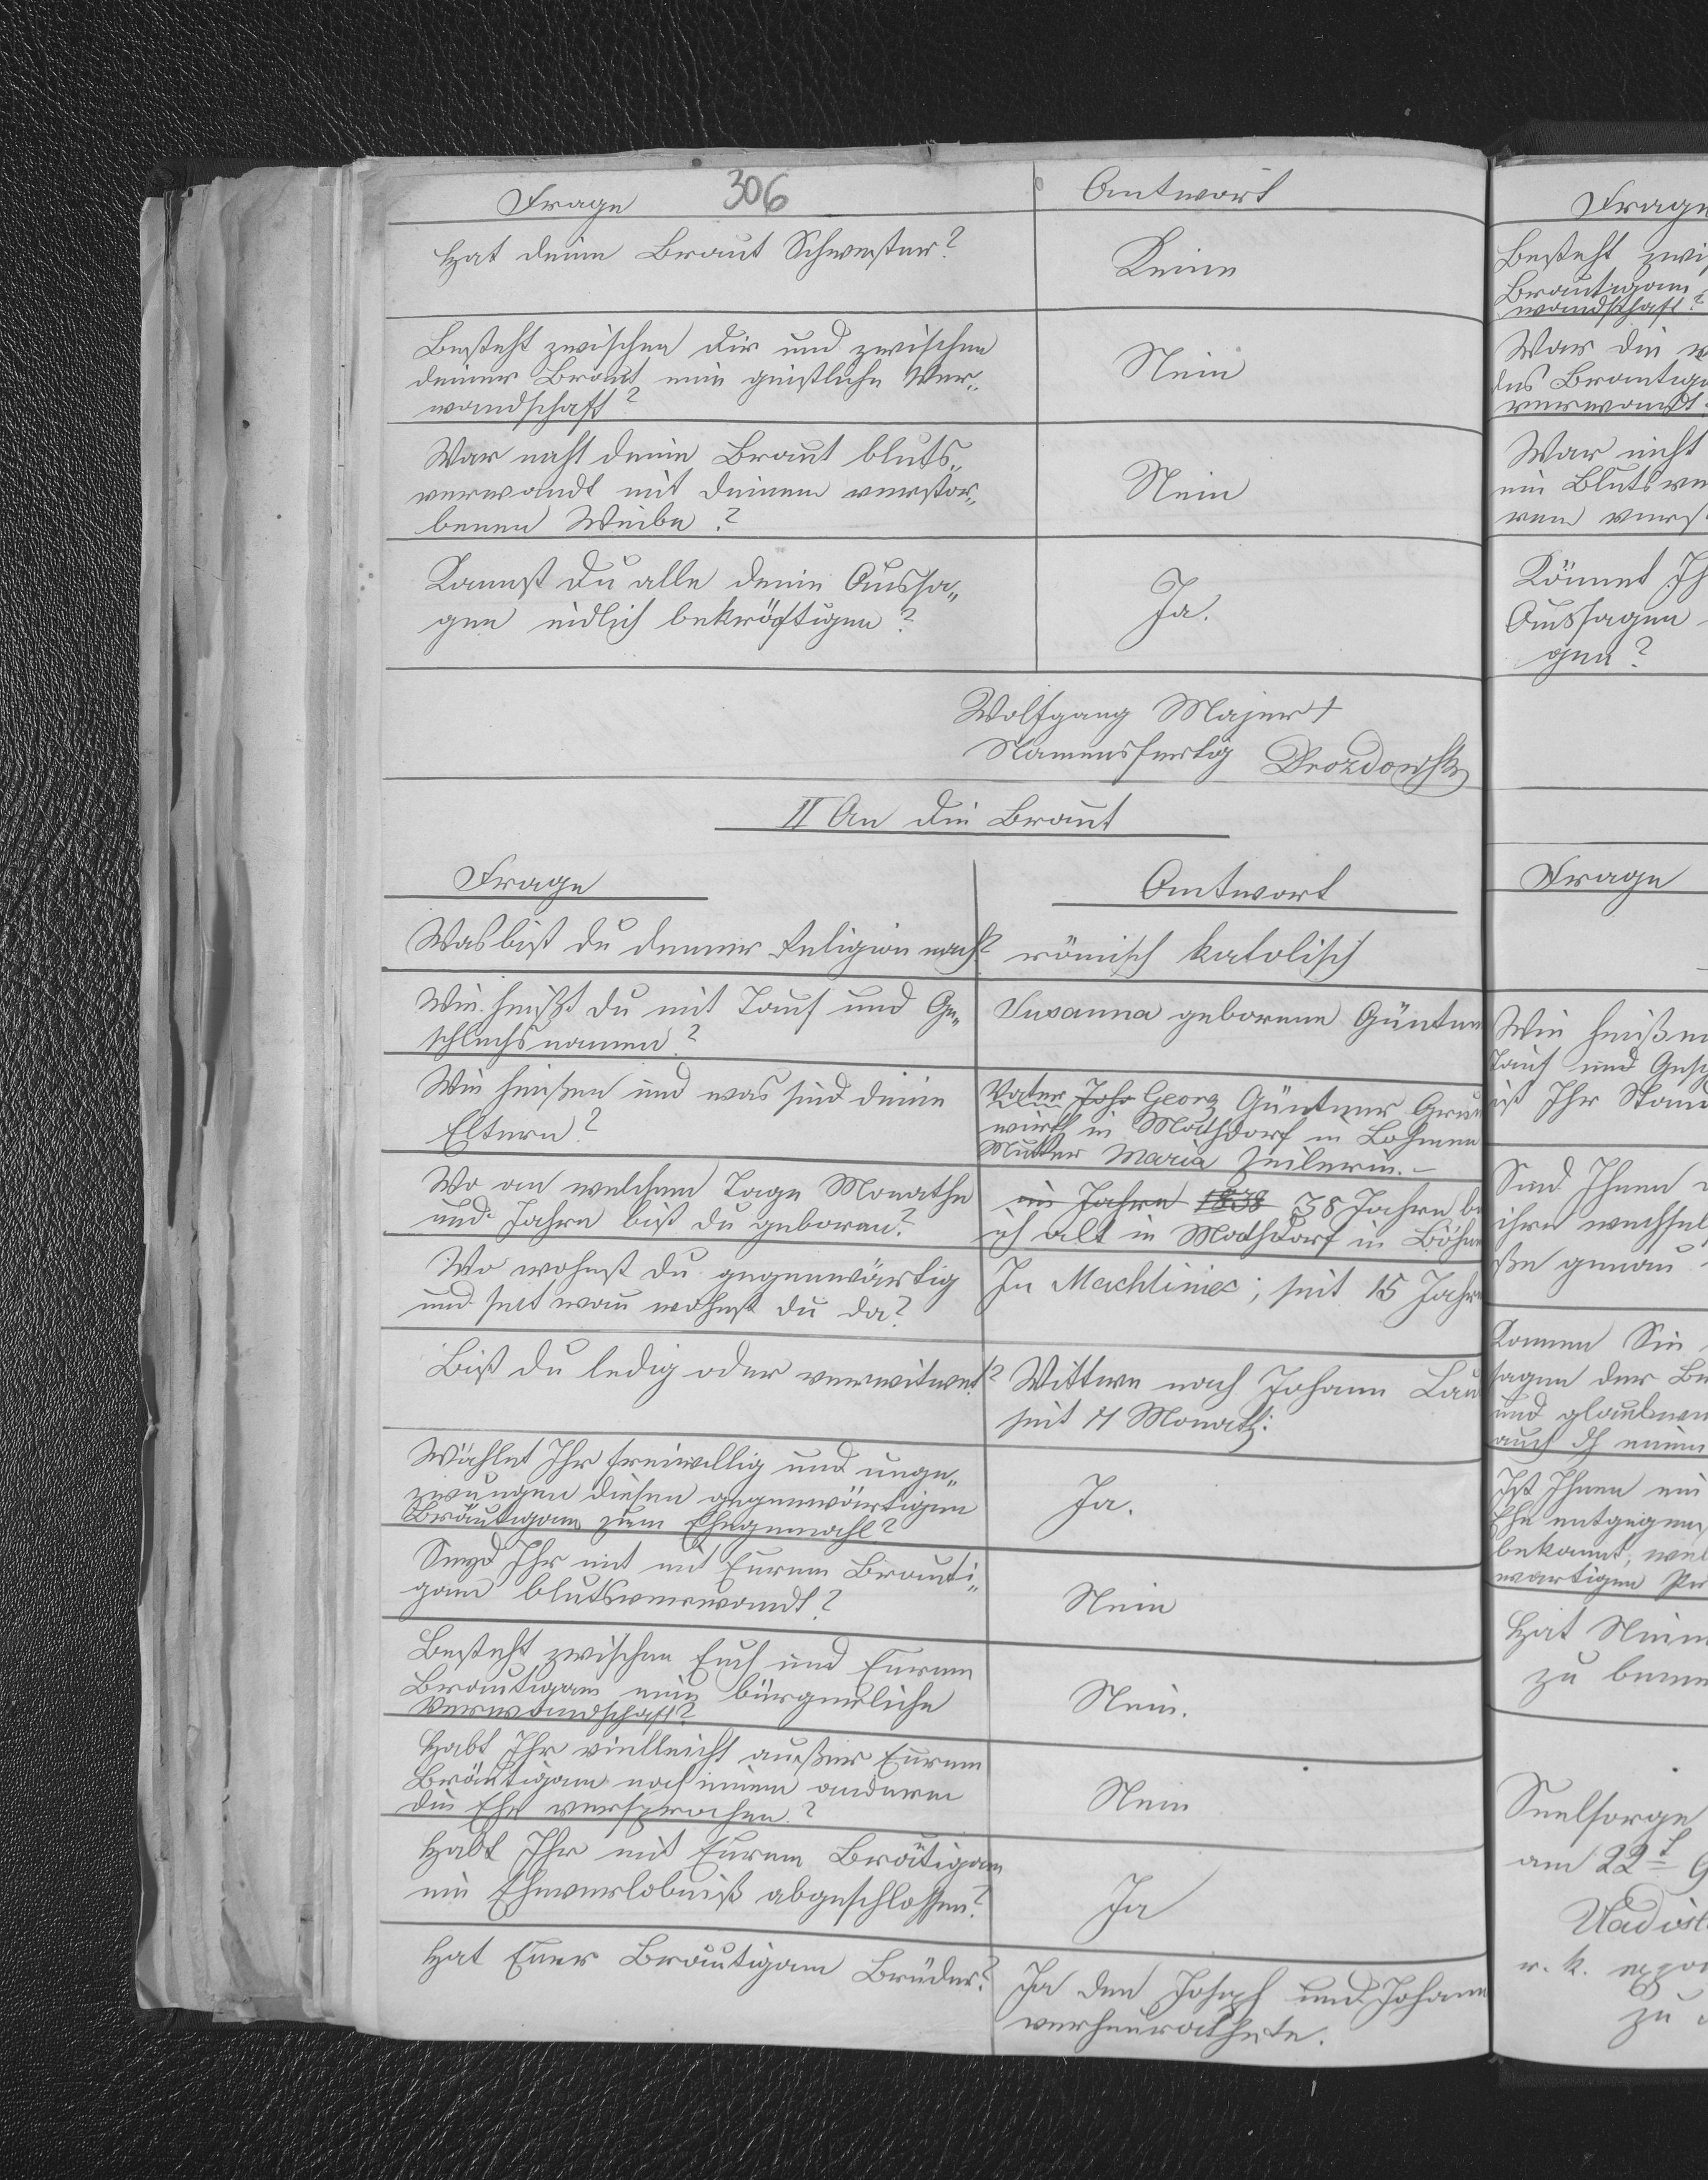 306
Frage Antwort
Hat deine Braut Schwester? Keine
Besteht zwischen dir und zwischen
deiner Braut eine geistliche Ver„
wandschaft? Nein
War nicht deine Braut bluts„
verwandt mit deinem verstor„
benen Weibe? Nein
Kannst du alle deine Aussa„
gen eidlich bekräftigen? Ja.
Wolfgang Majer +
Namensfertig Drozdowski
II An die Braut
Frage Antwort
Was bist du deiner Religion nach? römisch katolisch
Wie heißt du mit Tauf und Ge„ Susanna geborene Güntne
schlechsnamen?
Wie heißen und was sind deine Vater Joh Georg Güntner Gru
Eltern? wirth in Mathdorf in Bohmen
Mutter Maria Zeilerin.–
Wo an welchem Tage Monathe im Jahre 1838 38 Jahre b
und Jahre bist du geboren? ich alt in Mathdorf in Böhm
Wo wohnst du gegenwärtig In Machliniec; seit 15 Jahr
und seit wan wohnst du da?
Bist du ledig oder verwitwet? Wittwe nach Johann Lau
seit 4 Monath.
Wählet Ihr freiwillig und unge„
zwungen diesen gegenwärtigen Ja.
Bräutigam zum Ehegemahl?
Seyd Ihr nit mit Eurem Brauti„
gam blutsverwandt? Nein
Besteht zwischen Euch und Eurem
Brautigam eine bürgerliche Nein.
Verwandschaft?
Habt Ihr vielleicht außer Eurem
Bräutigam noch einem anderen Nein
die Ehe versprochen?
Habt Ihr mit Eurem Brätigam
ein Eheverlobniß abgeschlossen? Ja
Hat Euer Bräutigam Brüder? Ja den Joseph und Johann
verheurathete.
Frage
Besteht zwi
Brautigam
wandschaft?
War die
des Brautiga
verwandt
War nicht
ein Blutsve
ren verst
Könnet Ih
Aussagen
gen?
Frage
Wie heißen
Tauf und Gesch
ist Ihr Stand
Sind Ihnen
ihre wechsel
ße genau
Konnen Sie
sagen der Br
und glaubwu
auch
Ist Ihnen ein
Ehe entgegen
bekannt, wel
wartigen
Hat Niem
zu beme
Seelsorge
am 22t
r. k. expo
zu